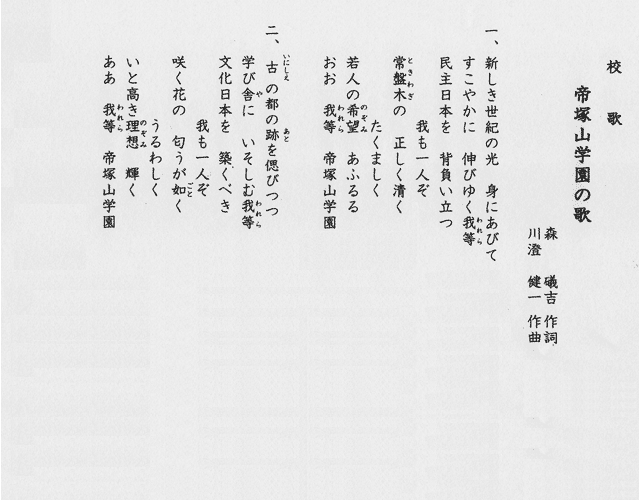 校歌
帝塚山学園の歌
森 礒吉 作詞
川澄 健一 作曲
一、新しき世紀の光 身にあびて
すこやかに 伸びゆく我等
民主日本を 背負い立つ
我も一人ぞ
常盤木の 正しく清く
たくましく
若人の希望 あふるる
おお 我等 帝塚山学園
二、古の都の跡を偲びつつ
学び舎に いそしむ我等
文化日本を 築くべき
我も一人ぞ
咲く花の 匂うが如く
うるわしく
いと高き理想 輝く
ああ 我等 帝塚山学園